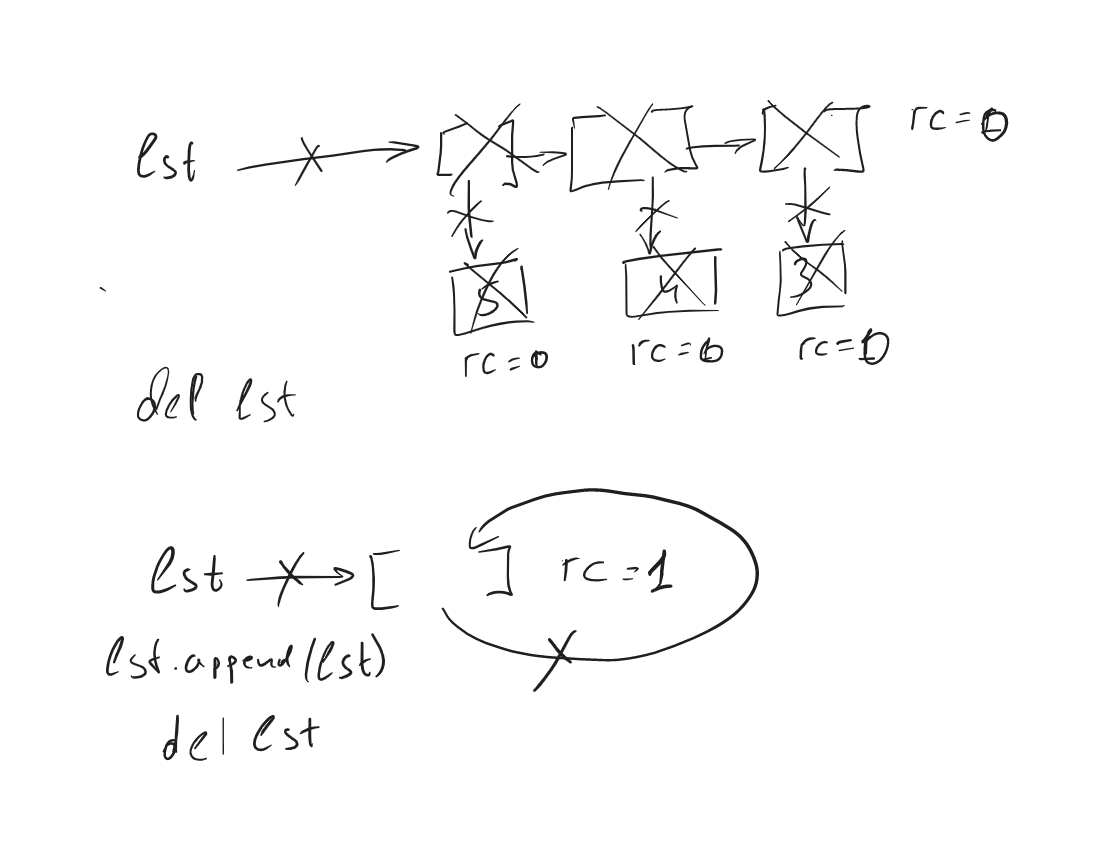 lst rc=0
5 4 3
rc=0 rc=0 rc=0
del lst
lst [ ] rc=1
lst.append(lst)
del lst